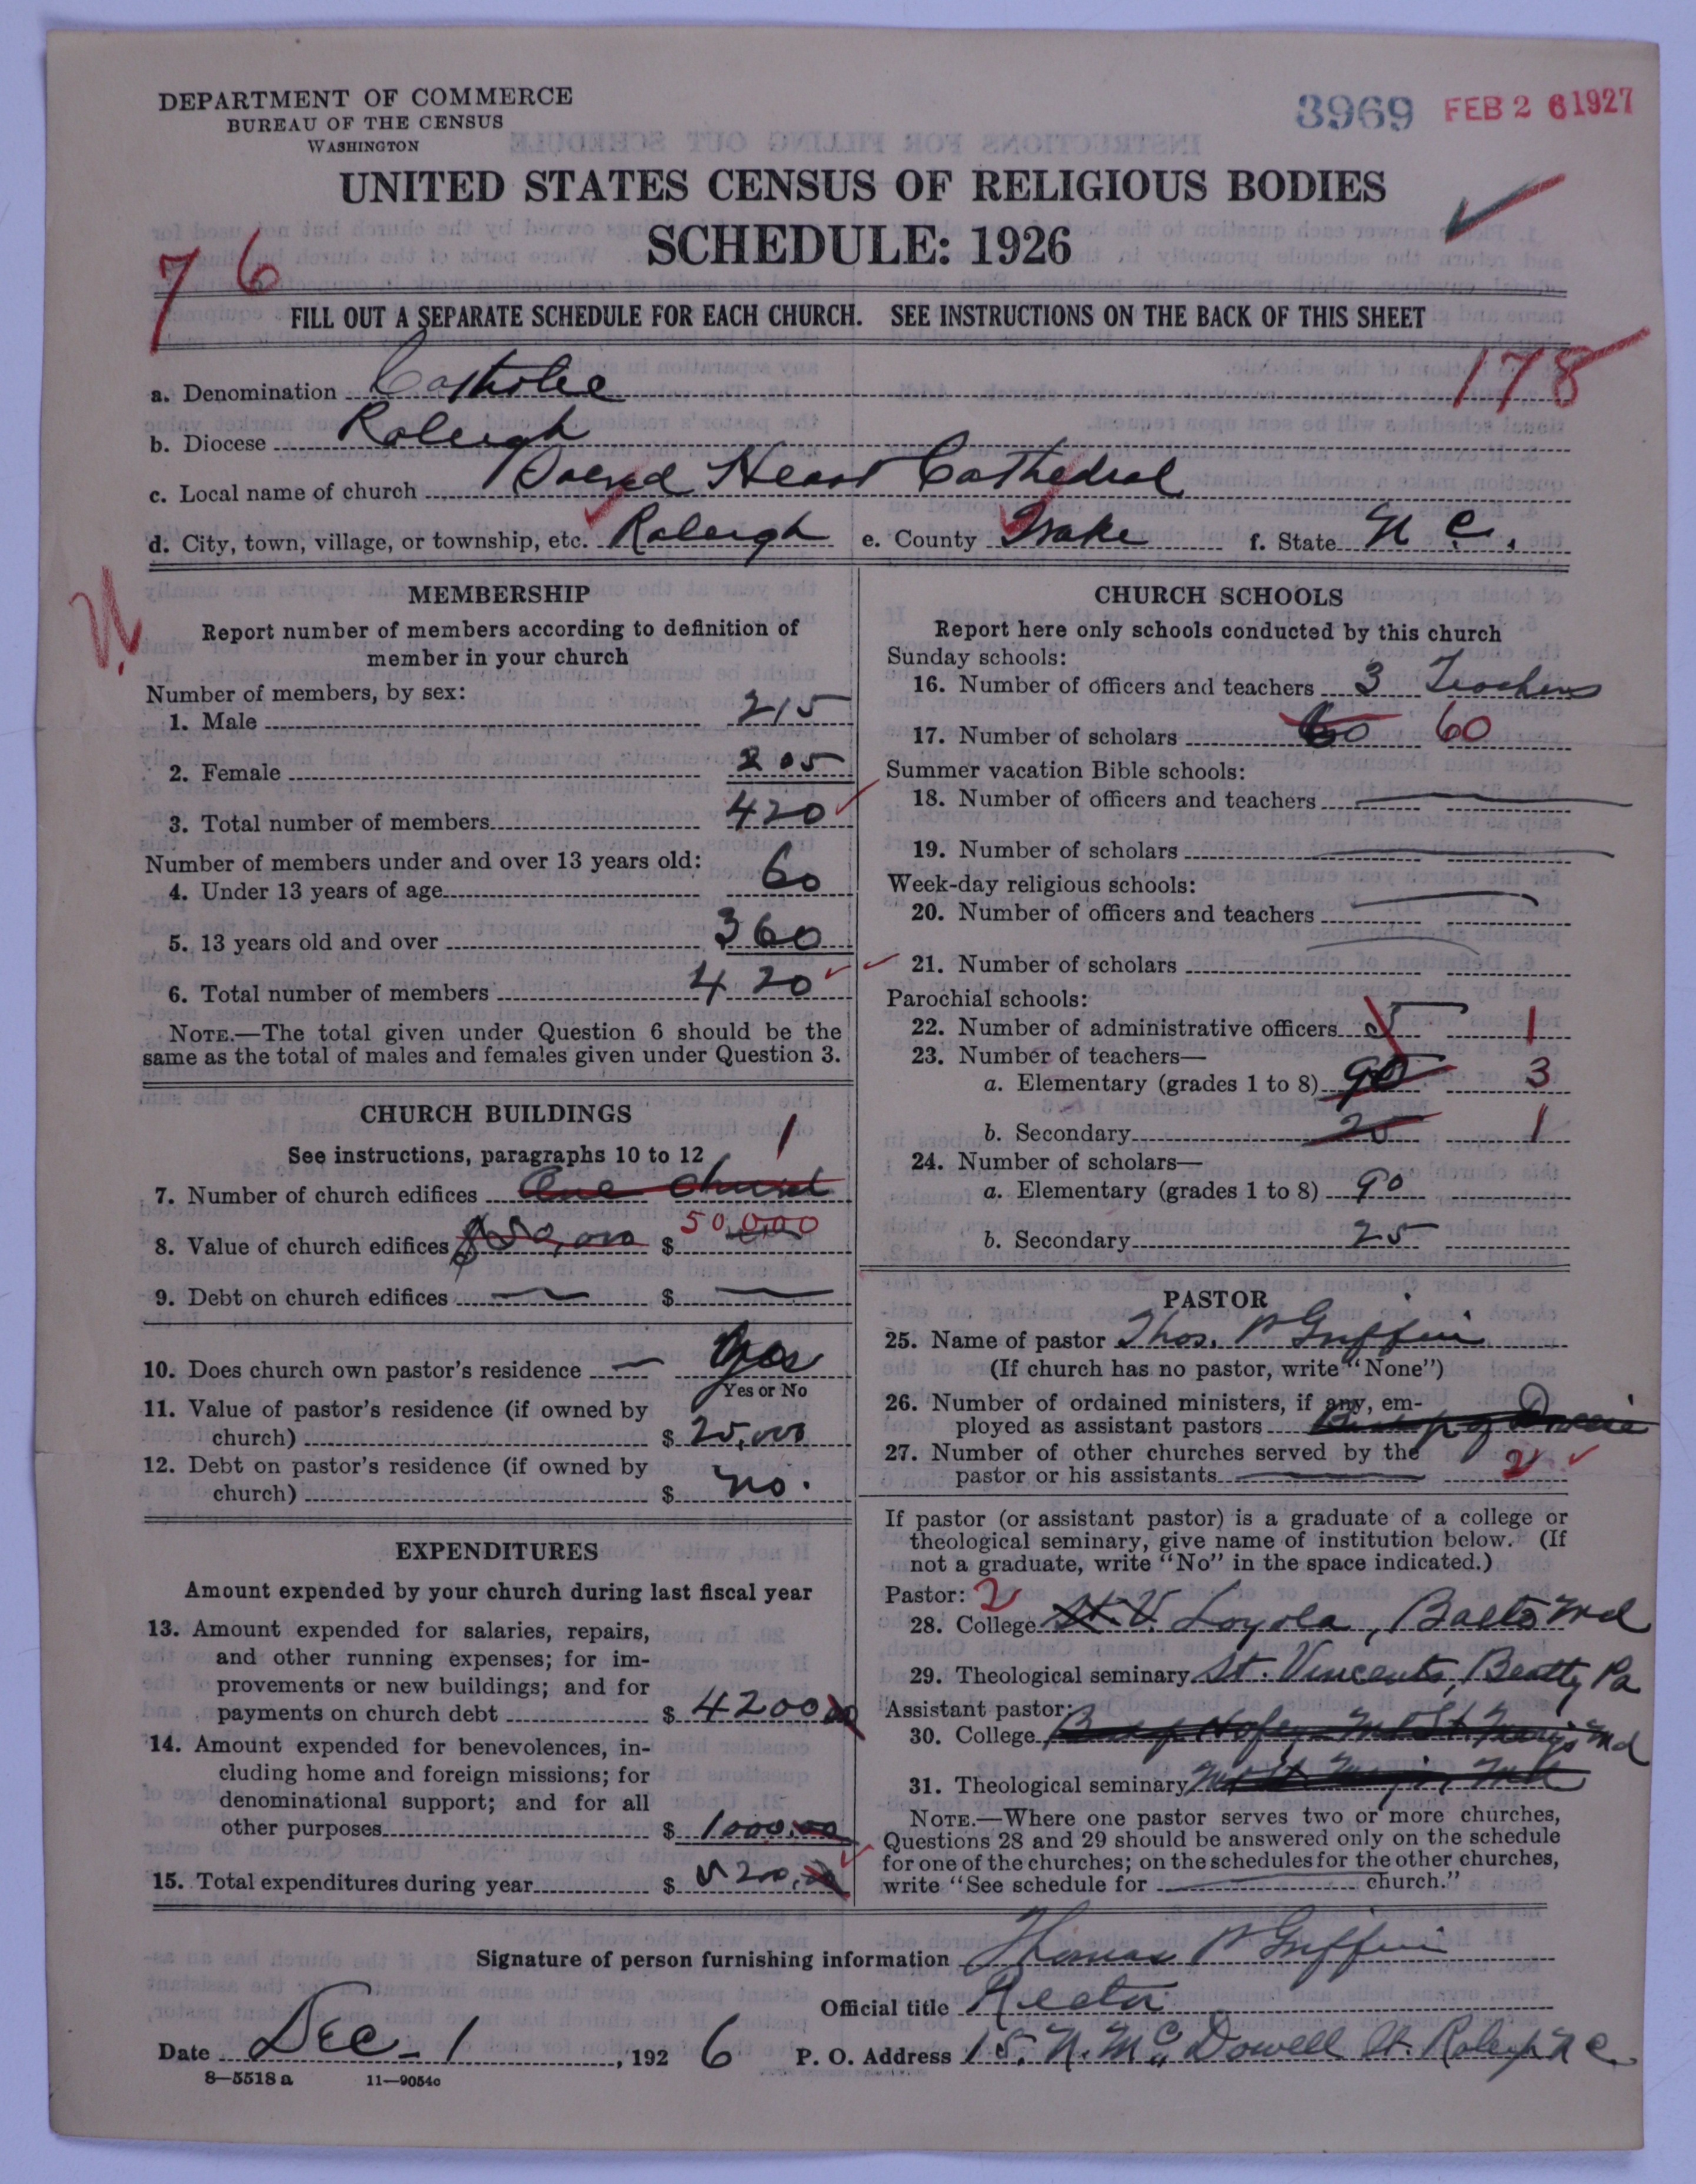 DEPARTMENT OF COMMERCE
BUREAU OF THE CENSUS
WASHINGTON
3969 FEB 26 1927
UNITED STATES CENSUS OF RELIGIOUS BODIES
SCHEDULE: 1926
76
FILL OUT A SEPARATE SCHEDULE FOR EACH CHURCH. SEE INSTRUCTIONS ON THE BACK OF THIS SHEET
178
a. Denomination Catholic
b. Diocese Raleigh
c. Local name of church Sacred Heart Cathedral
d. City, town, village, or township, etc. Raleigh e. County Wake f. State N C.
MEMBERSHIP
Report number of members according to definition of
member in your church
Number of members, by sex:
1. Male 215
2. Female 205
3. Total number of members 420
Number of members under and over 13 years old:
4. Under 13 years of age 60
5. 13 years old and over 360
6. Total number of members 420
NOTE.—The total given under Question 6 should be the
same as the total of males and females given under Question 3.
CHURCH BUILDINGS
See instructions, paragraphs 10 to 12 1
7. Number of church edifices One Church
8. Value of church edifices $50,000 $ 50,000
9. Debt on church edifices — $ —
10. Does church own pastor's residence — Yes
Yes or No
11. Value of pastor's residence (if owned by
church) $ 25,000
12. Debt on pastor's residence (if owned by
church) $ no.
EXPENDITURES
Amount expended by your church during last fiscal year
13. Amount expended for salaries, repairs,
and other running expenses; for im-
provements or new buildings; and for
payments on church debt $ 4200 00
14. Amount expended for benevolences, in-
cluding home and foreign missions; for
denominational support; and for all
other purposes $ 1000.00
15. Total expenditures during year $ 5200.00
CHURCH SCHOOLS
Report here only schools conducted by this church
Sunday schools:
16. Number of officers and teachers 3 Teachers
17. Number of scholars 60 60
Summer vacation Bible schools:
18. Number of officers and teachers —
19. Number of scholars —
Week-day religious schools:
20. Number of officers and teachers —
21. Number of scholars —
Parochial schools:
22. Number of administrative officers 5 1
23. Number of teachers—
a. Elementary (grades 1 to 8) 90 3
b. Secondary 25 1
24. Number of scholars—
a. Elementary (grades 1 to 8) 90
b. Secondary 25
PASTOR
25. Name of pastor Thos. P Griffin
(If church has no pastor, write "None")
26. Number of ordained ministers, if any, em-
ployed as assistant pastors
27. Number of other churches served by the
pastor or his assistants — 2
If pastor (or assistant pastor) is a graduate of a college or
theological seminary, give name of institution below. (If
not a graduate, write "No" in the space indicated.)
Pastor: 2
28. College St. V. Loyola, Balto Md
29. Theological seminary St. Vincents, Beatty Pa
Assistant pastor:
30. College Mt St. Mary's Md
31. Theological seminary Mt St Mary's, Md
NOTE.—Where one pastor serves two or more churches,
Questions 28 and 29 should be answered only on the schedule
for one of the churches; on the schedules for the other churches,
write "See schedule for — church."
Signature of person furnishing information Thomas P Griffin
Official title Rector
Date Dec 1, 1926 P. O. Address 15. N. McDowell St. Raleigh N C.
8—5518 a 11—9054c